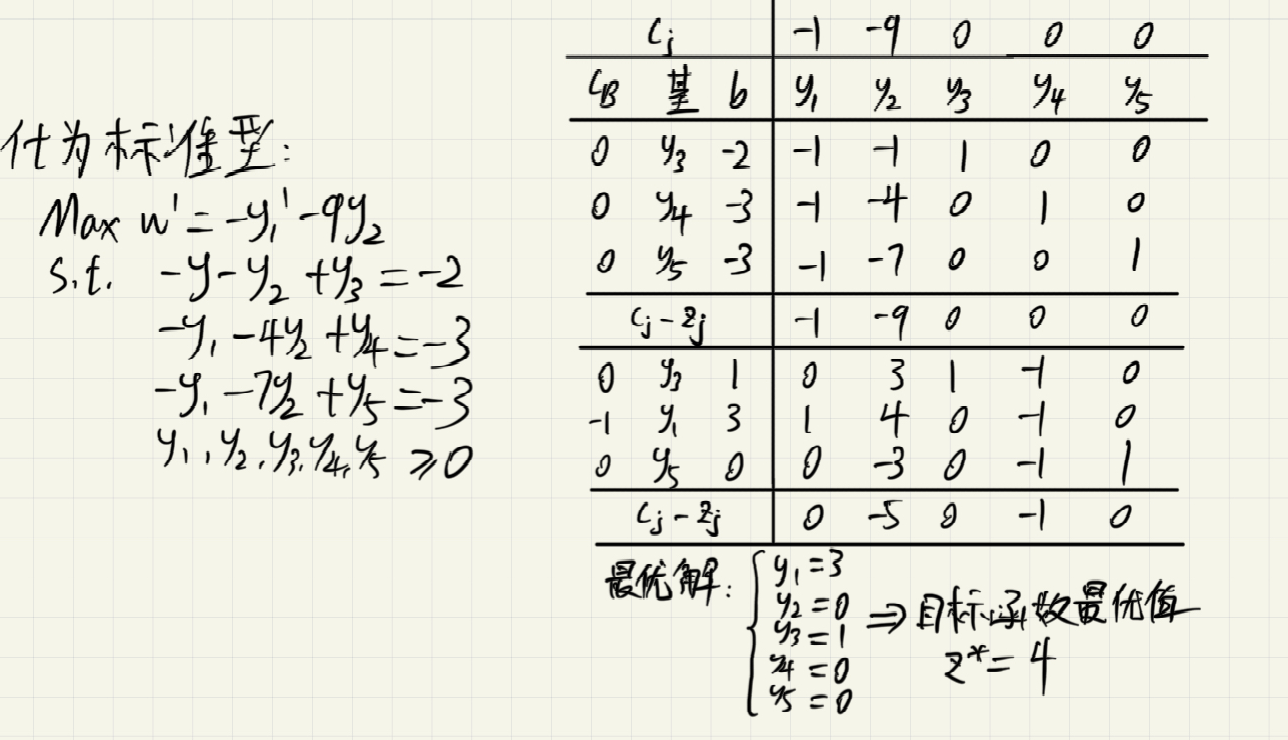 化为标准型:
Max w' = -y₁' - 9y₂
s.t. -y - y₂ + y₃ = -2
-y₁ - 4y₂ + y₄ = -3
-y₁ - 7y₂ + y₅ = -3
y₁, y₂, y₃, y₄, y₅ ⩾ 0
Cj -1 -9 0 0 0
CB 基 b y₁ y₂ y₃ y₄ y₅
0 y₃ -2 -1 -1 1 0 0
0 y₄ -3 -1 -4 0 1 0
0 y₅ -3 -1 -7 0 0 1
Cj - Zj -1 -9 0 0 0
0 y₃ 1 0 3 1 -1 0
-1 y₁ 3 1 4 0 -1 0
0 y₅ 0 0 -3 0 -1 1
Cj - Zj 0 -5 0 -1 0
最优解:
y₁ = 3
y₂ = 0
y₃ = 1
y₄ = 0
y₅ = 0
⇒ 目标函数最优值
z* = 4